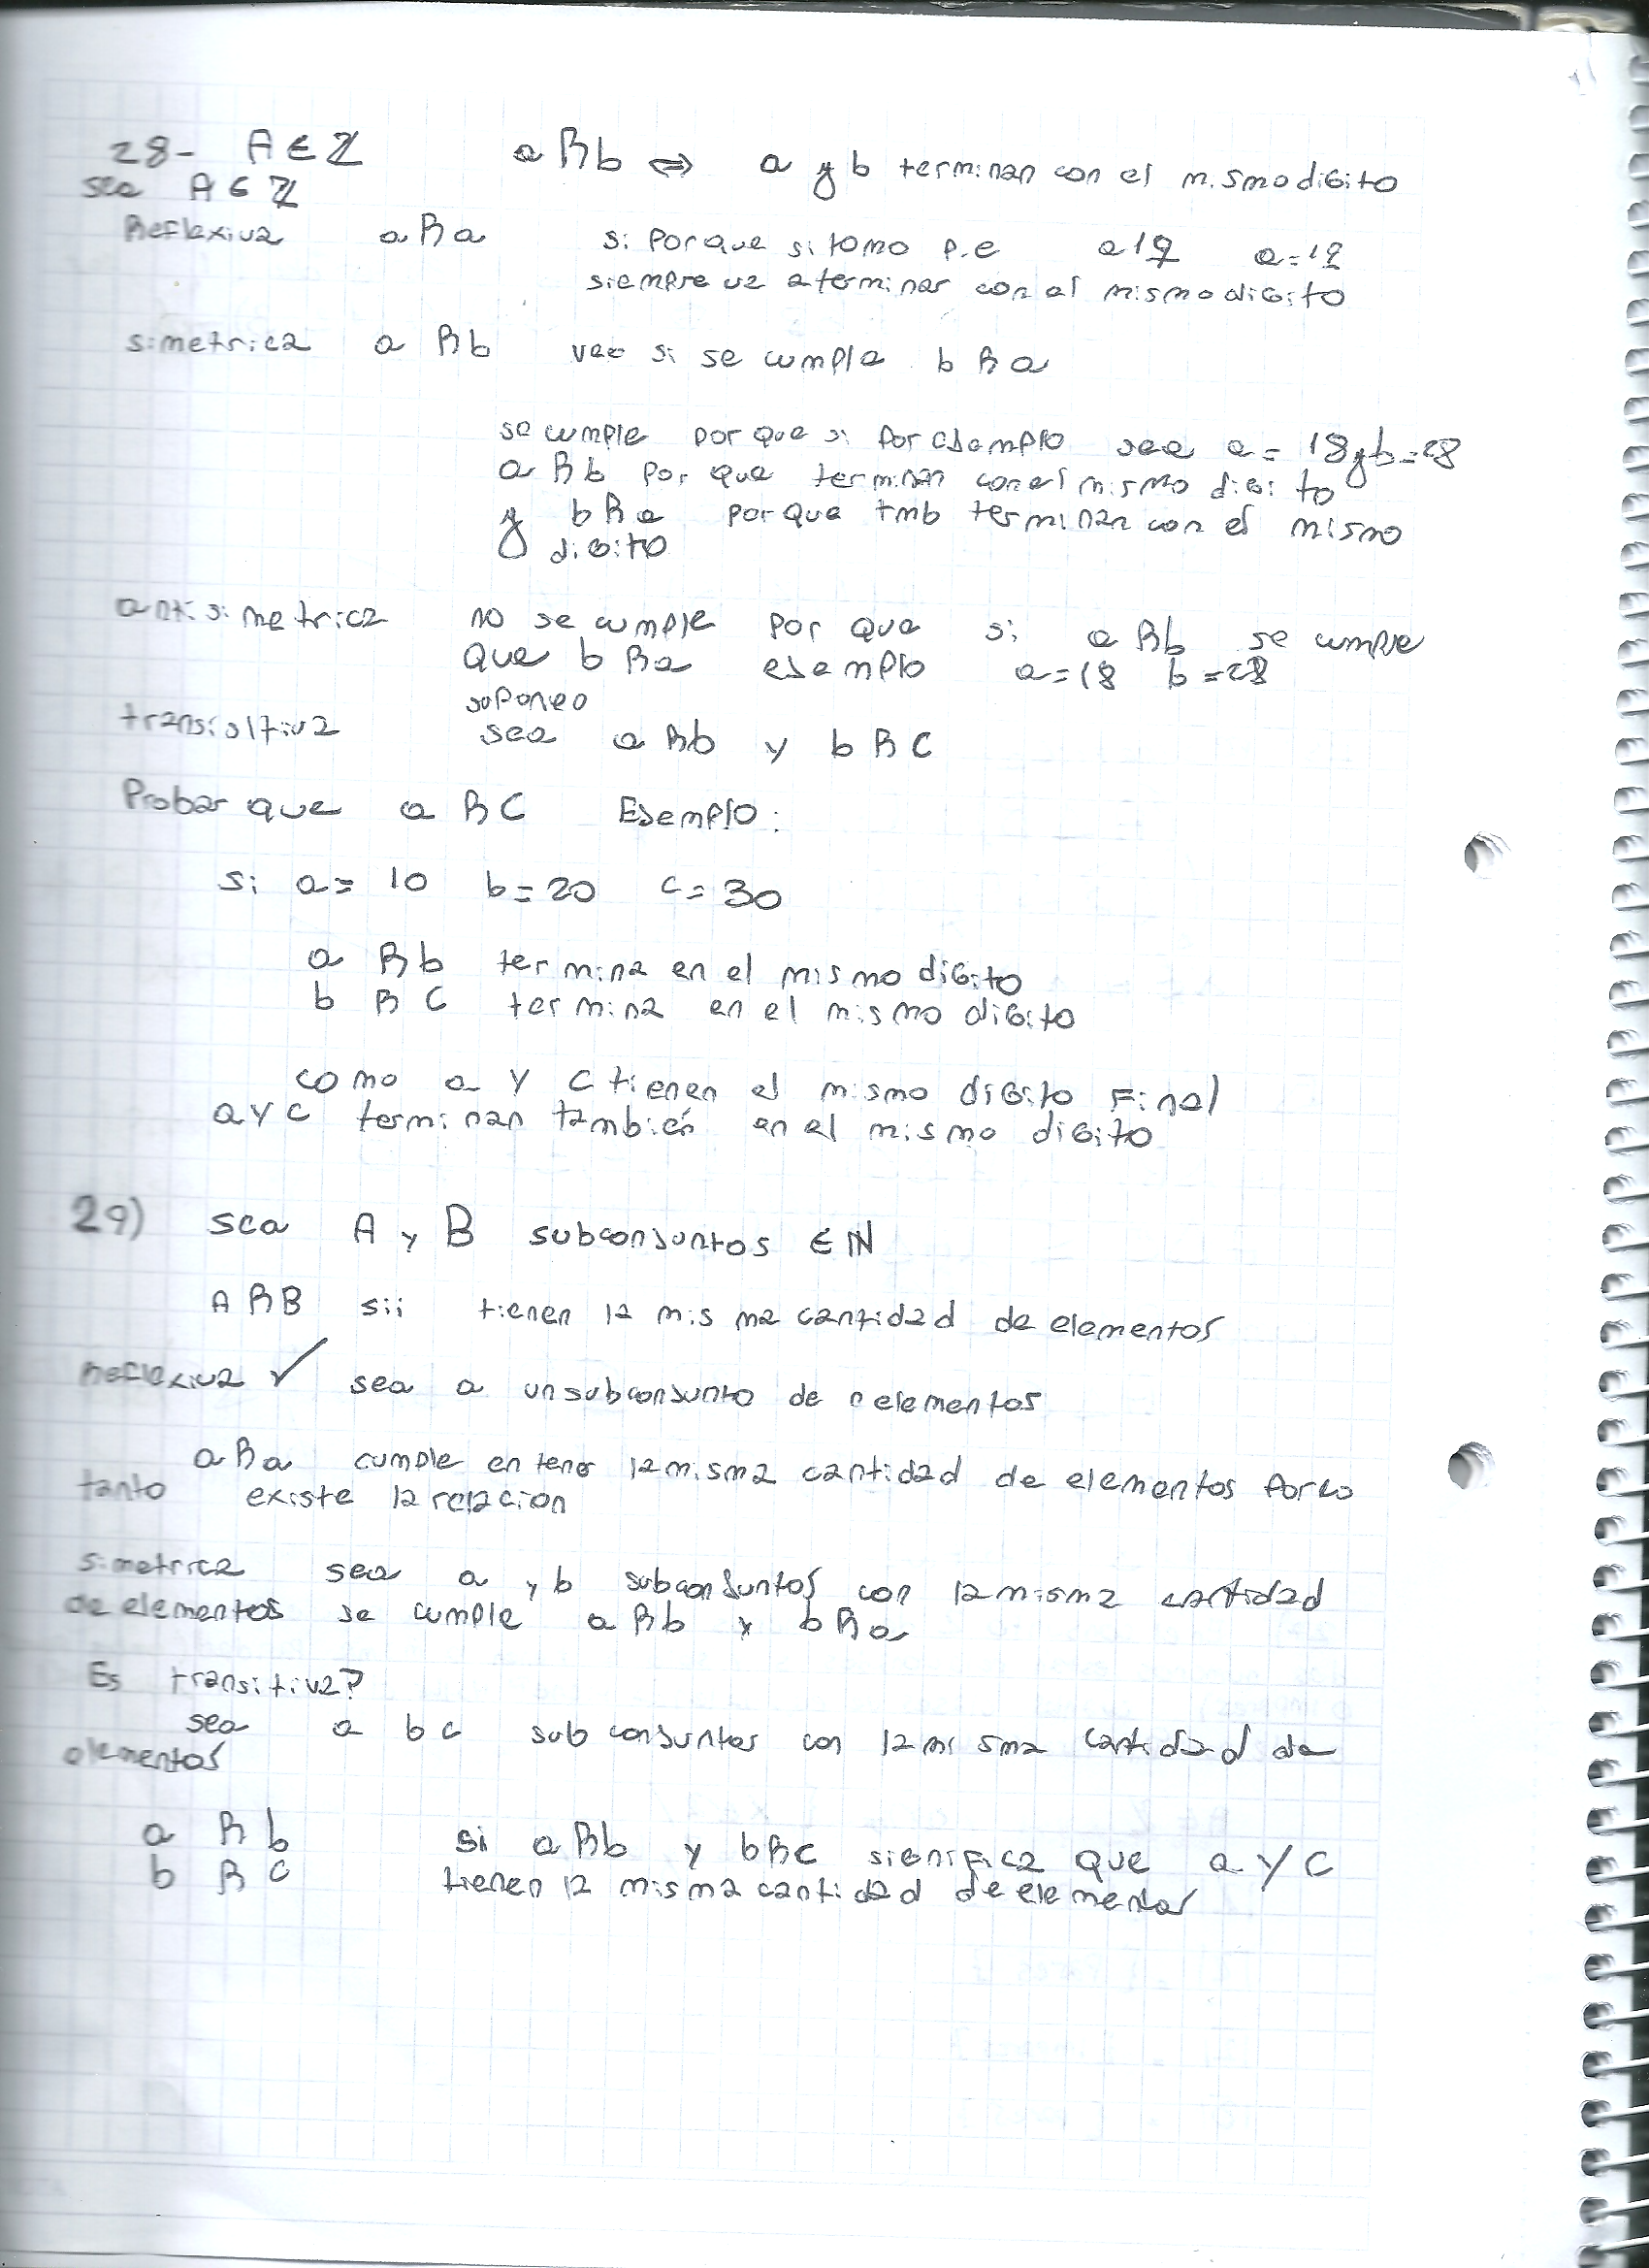 28- A ∈ ℤ aRb ⇔ a y b terminan con el mismo digito
sea A ∈ ℤ
Reflexiva aRa si porque si tomo p.e a 1 a=1
siempre va a terminar con el mismo digito
simetrica a Rb veo si se cumple bRa
se cumple porque si por ejemplo sea a=18 y b=28
aRb por que terminan con el mismo digito
y bRa porque tmb terminan con el mismo
digito
antisimetrica no se cumple por que si aRb se cumple
que bRa ejemplo a=18 b=28
supongo
transitiva sea aRb y bRC
Probar que aRC Ejemplo:
Si a= 10 b=20 c=30
a Rb termina en el mismo digito
b RC termina en el mismo digito
como a y C tienen el mismo digito Final
a y C terminan también en el mismo digito
29) sea A y B subconjuntos ∈ ℕ
ARB sii tienen la misma cantidad de elementos
Reflexiva ✓ sea a un subconjunto de n elementos
aRa cumple en tener la misma cantidad de elementos por lo
tanto existe la relacion
simetrica sea a y b subconjuntos con la misma cantidad
de elementos se cumple aRb y bRa
Es transitiva?
sea a b c subconjuntos con la misma cantidad de
elementos
a R b si aRb y bRC significa que a y C
b R C tienen la misma cantidad de elementos